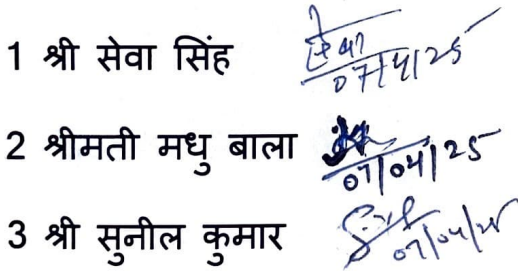 1 श्री सेवा सिंह 07/4/25
2 श्रीमती मधु बाला 07/04/25
3 श्री सुनील कुमार 07/04/25